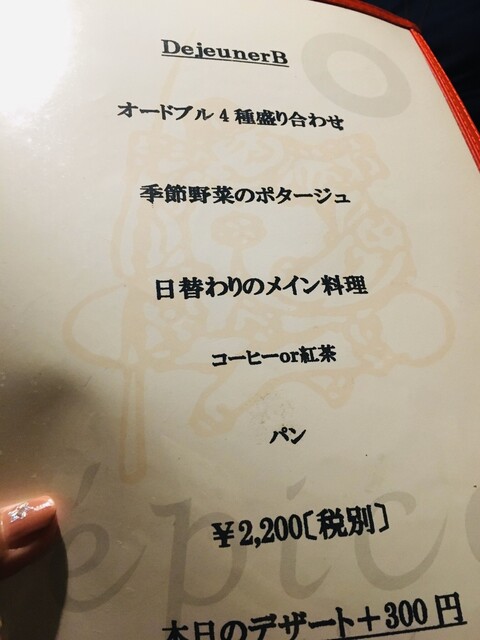 DejeunerB
オードブル4種盛り合わせ
季節野菜のポタージュ
日替わりのメイン料理
コーヒーor紅茶
パン
¥2,200〔税別〕
本日のデザート+300円